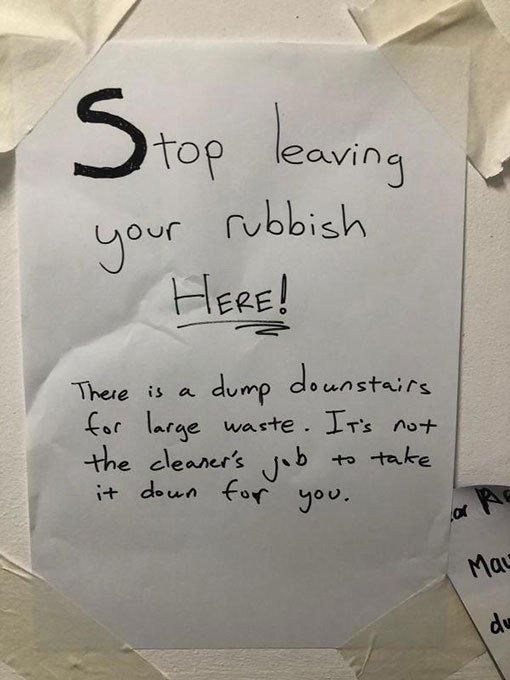 Stop leaving
your rubbish
HERE!
There is a dump downstairs
for large waste. IT's not
the cleaner's job to take
it down for you.
Mau
du